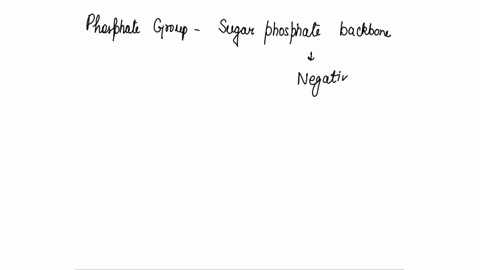 Phosphate Group - Sugar phosphate backbone
↓
Negativ